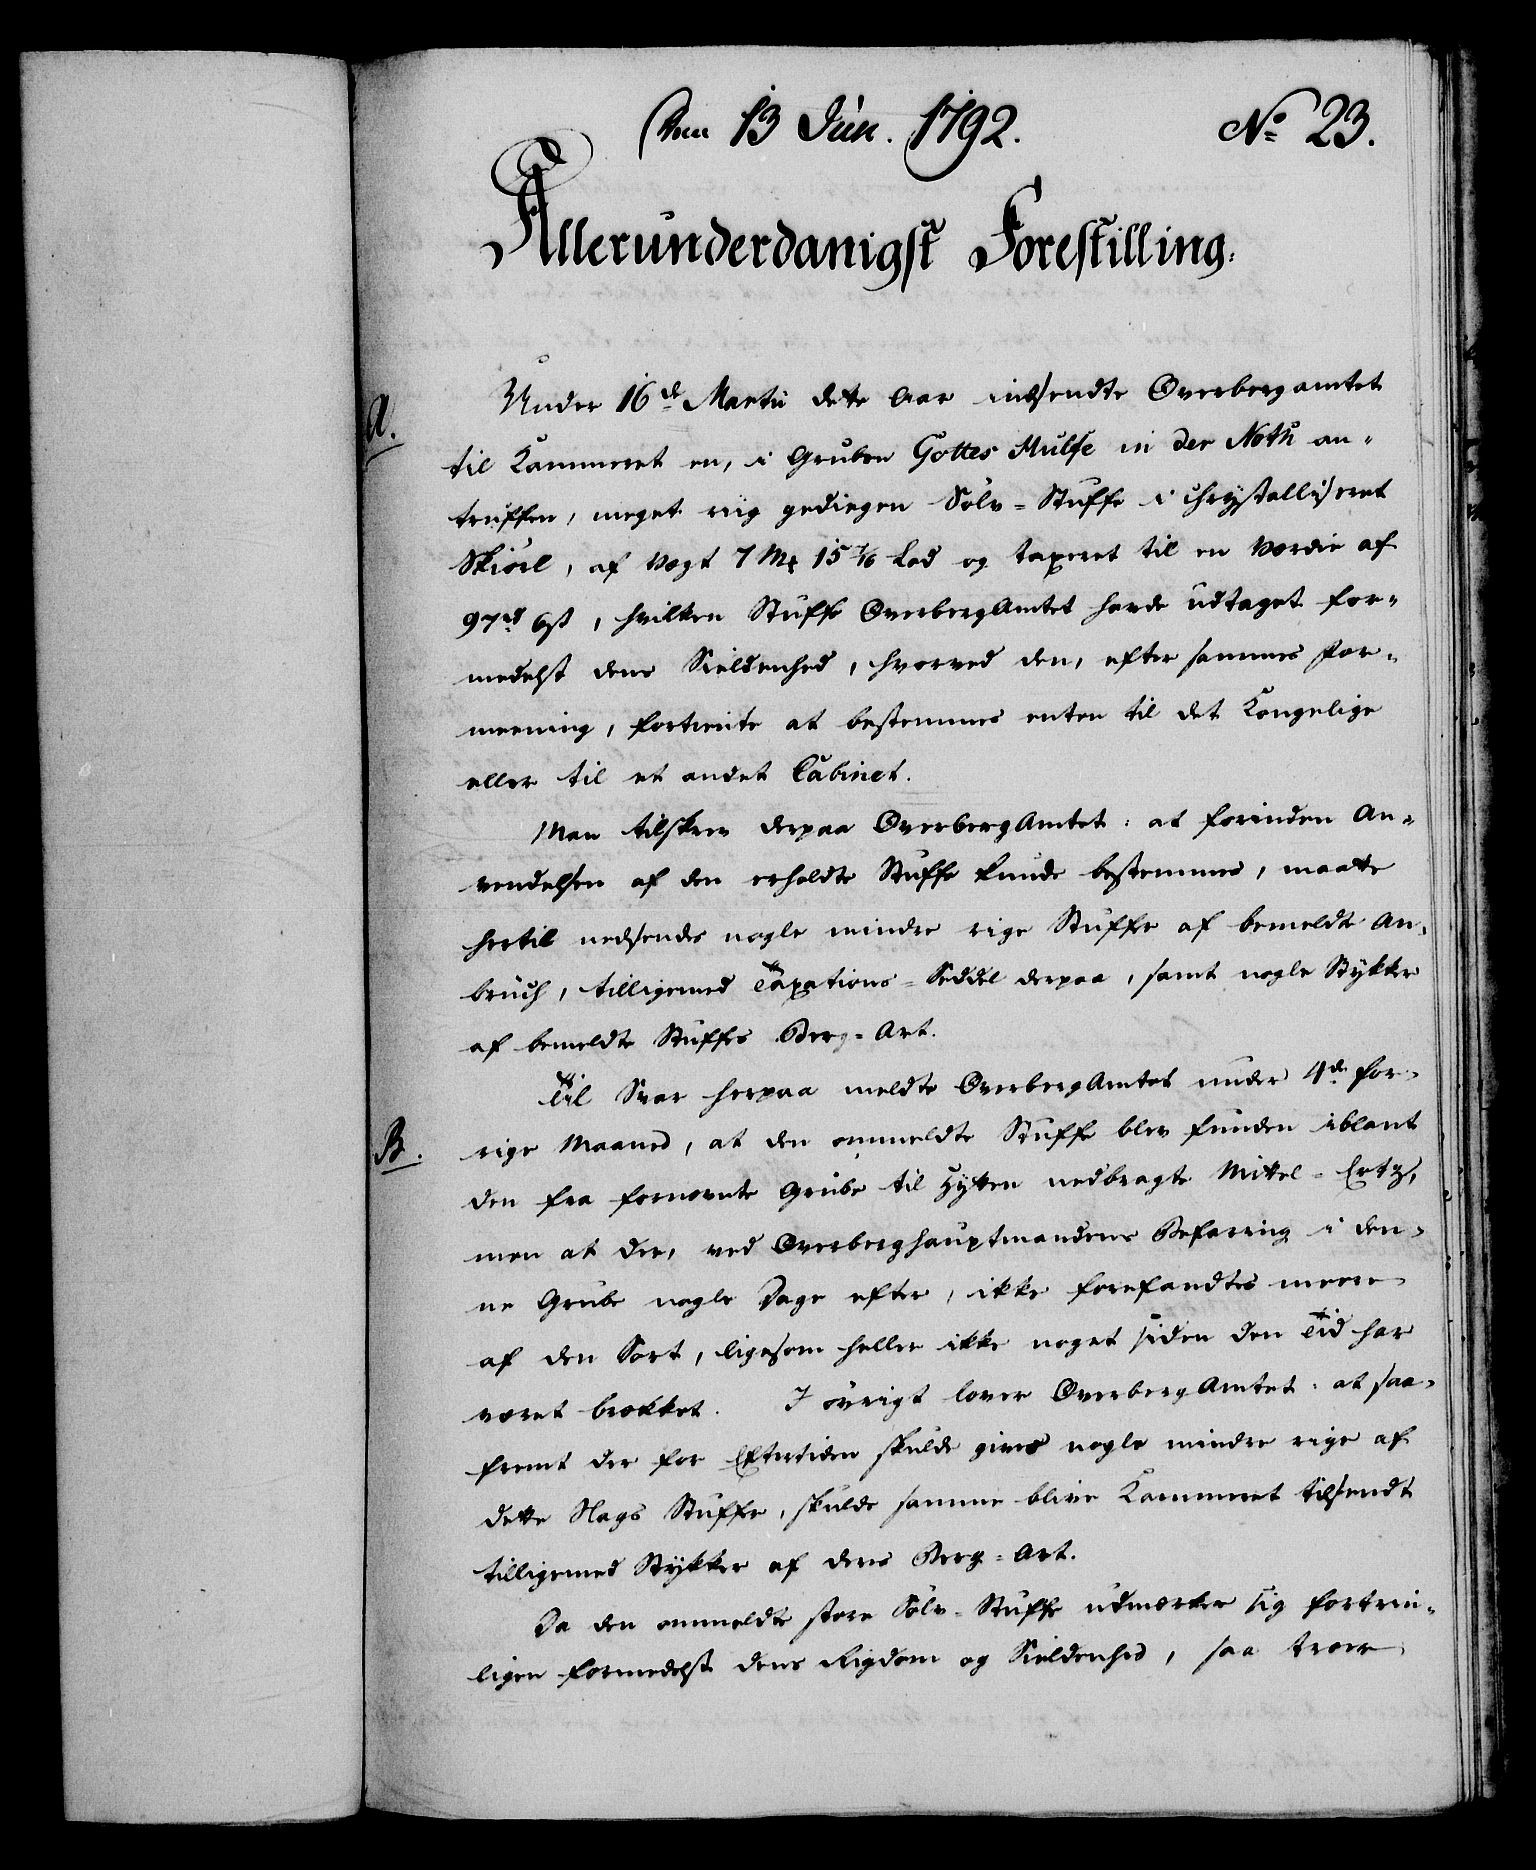 Den 13 Jun. 1792. No 23.
Allerunderdanigst Forestilling.
A.
Under 16de Martii dette Aar indsendte Overbergamtet
til Kammeret en, i Gruben Gottes Hülfe in der Noth an-
truffen, meget riig gediegen Sölv-Stuffe i chrystalliseret
Skiörl, af Vægt 7 Mk 15 7/16 Lod og taxeret til en Værdie af
97 rd 6 ß, hvilken Stuffe OverbergAmtet havde udtaget for-
medelst dens Sieldenhed, hvorved den, efter sammes For-
meening, fortiente at bestemmes enten til det Kongelige
eller til et andet Cabinet.
Man tilskrev derpaa OverbergAmtet: at forinden An-
vendelsen af den erholdte Stuffe kunde bestemmes, maatte
hertil nedsendes nogle mindre rige Stuffer af bemeldte An-
bruch, tilligemed Taxations-Seddel derpaa, samt nogle Stykker
af bemeldte Stuffes Berg-Art.
Til Svar herpaa meldte OverbergAmtet under 4de for-
B.
rige Maaned, at den ommeldte Stuffe blev funden iblant
den fra fornævnte Grube til Hytten nedbragte Mittel-Ertz,
men at der, ved Overberghauptmandens Befaring i den-
ne Grube nogle Dage efter, ikke forefandtes meere
af den Sort, ligesom heller ikke noget siden den Tid har
været brækket. I övrigt lover OverbergAmtet: at saa-
fremt der for Eftertiden skulde gives nogle mindre rige af
dette Slags Stuffer, skulde samme blive Kammeret tilsendt
tilligemed Stykker af dens Berg-Art.
Da den ommeldte store Sölv-Stuffe udmærker sig fortrin-
ligen formedelst dens Rigdom og Sieldenhed, saa troer